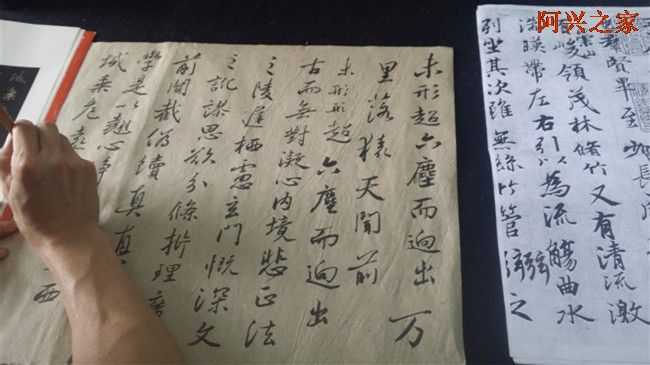 阿兴之家
賢畢至少長
峻領茂林脩竹又有清流激
湍暎帶左右引以為流觴曲水
列坐其次雖無絲竹管弦之
未形超六塵而迥出万
里落猿天聞前
未形形超六塵而迥出
古而無對凝心内境悲正法
之陵遲栖慮玄門慨深文
之訛謬思欲分條析理廣
前聞截偽續真真
學是以翹心淨
城乘危遠
西